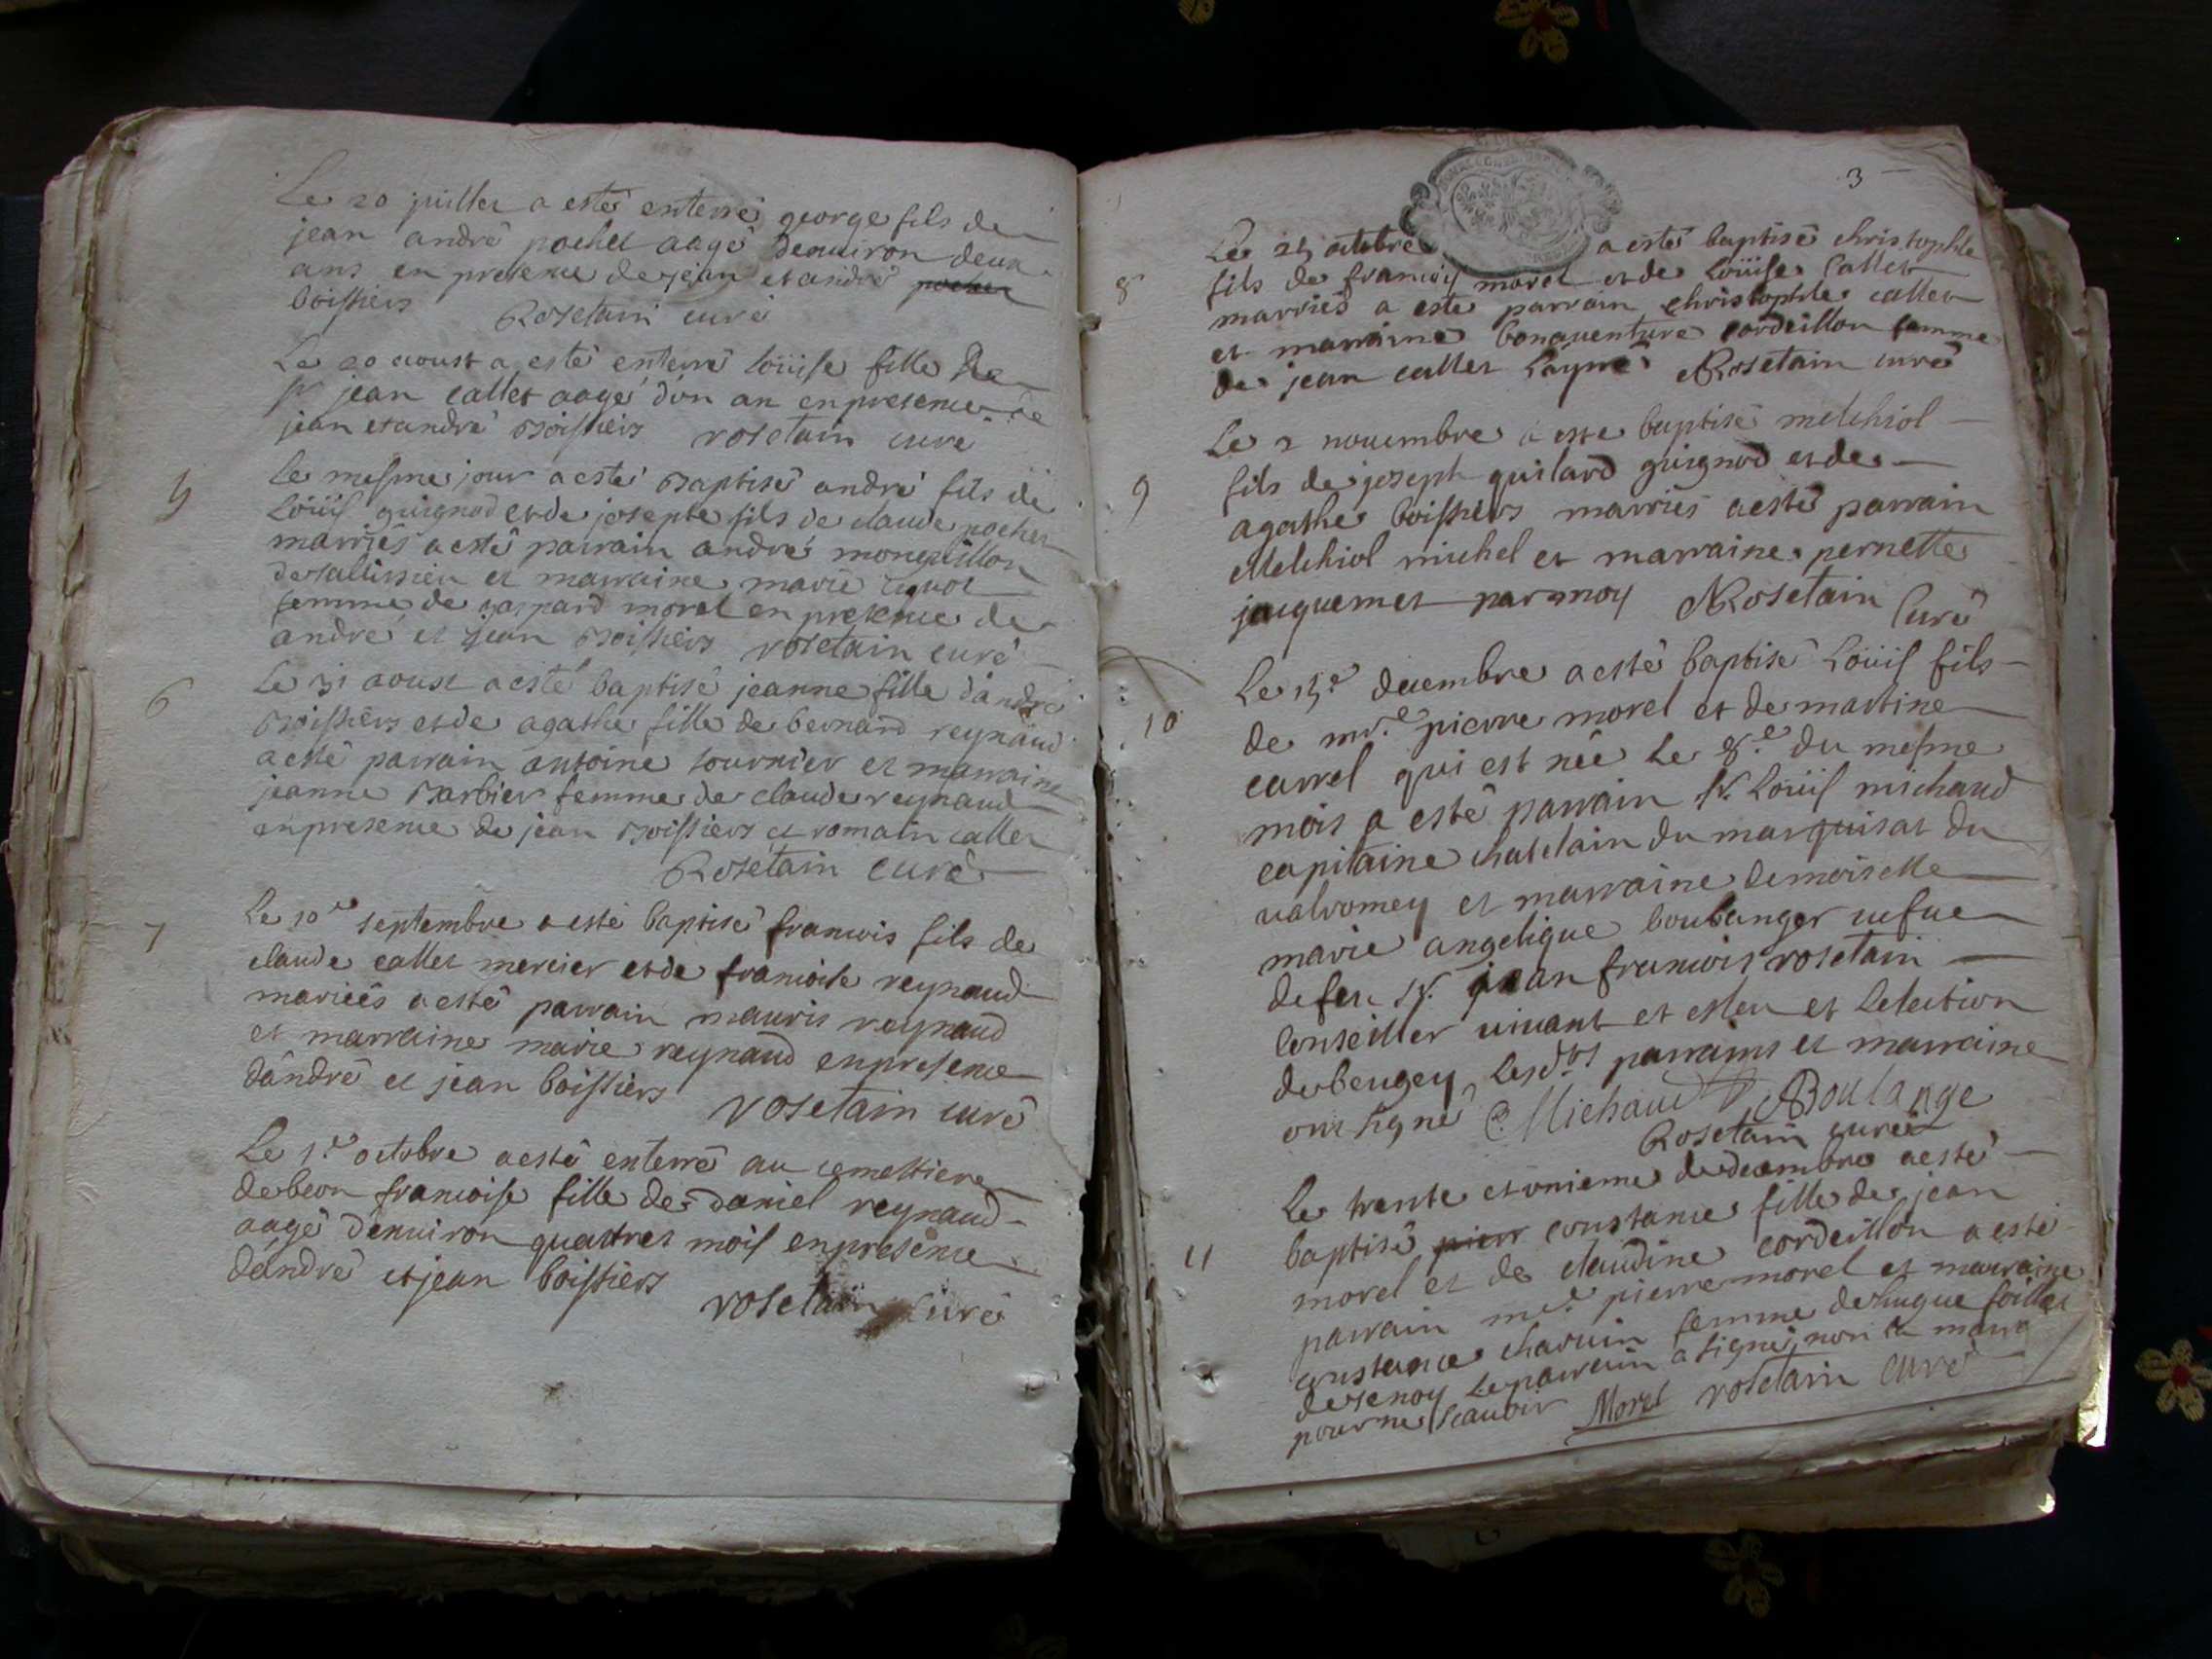 Le 20 juillet a esté enterré george fils de
jean andré pochet aagé denuiron deux
ans en presence de jean et andré pochet
boissiers Rosetain curé
Le 20 aoust a esté enterré Loüise fille de
sr jean callet aagé d'un an en presence de
jean et andré Boissiers rosetain curé
5
le mesme jour a esté Baptisé andré fils de
Loüis guignod et de josepte fils de claude pochet
marriés a esté parrain andré
et marraine marie
femme de gaspard morel en presence de
andré et jean Boissiers rosetain curé
6
Le 31 aoust a esté baptisé jeanne fille d'andré
Boissiers et de agathe fille de bernard reynaud
a esté parrain antoine tournier et marraine
jeanne Barbier femme de claude reynaud
en presence de jean Boissiers et romain callet
Rosetain curé
7
Le 10re septembre a esté baptisé francois fils de
claude callet mercier et de francoise reynaud
mariées a esté parrain mauris reynaud
et marraine marie reynaud en presence
d'andré et jean boissiers
rosetain curé
Le 1re octobre a esté enterré au cemettiere
de beon francoise fille de daniel reynaud
aagé d'enuiron quattres mois en presence
d'andré et jean boissiers
rosetain curé
3
8
Le 25 octobre a esté baptisé christophle
fils de francois morel et de Loüise Callet
marriés a esté parrain christophle callet
et marraine bonauenture cordeillon femme
de jean callet L'ayné Rosetain curé
9
Le 2 nouembre a esté baptisé melchiol
fils de joseph guilard guignod et de
agathe boissiers marriés a esté parrain
Melchiol michel et marraine pernette
jacquemet par moy Rosetain Curé
10
Le 15.e decembre a esté baptisé Loüis fils
de mr.e pierre morel et de martine
carrel qui est née Le 8.e du mesme
mois a esté parrain sr. Loüis michaud
capitaine chatelain du marquisat du
valromey et marraine demoiselle
marie angelique boulanger uefue
de feu sr. jean francois rosetain
Conseiller uiuant et esleu et Lelection
de beugey Lesdts parrains et marraine
ont signé Michaud Boulange
Rosetain curé
11
Le trente et onieme de decembre a esté
baptisé pierr constance fille de jean
morel et de claudine cordeillon a esté
parrain mr.e pierre morel et marraine
constance charuin femme de hugue
Le parrain a signé, non la marr
pour ne scauoir Morel rosetain curé